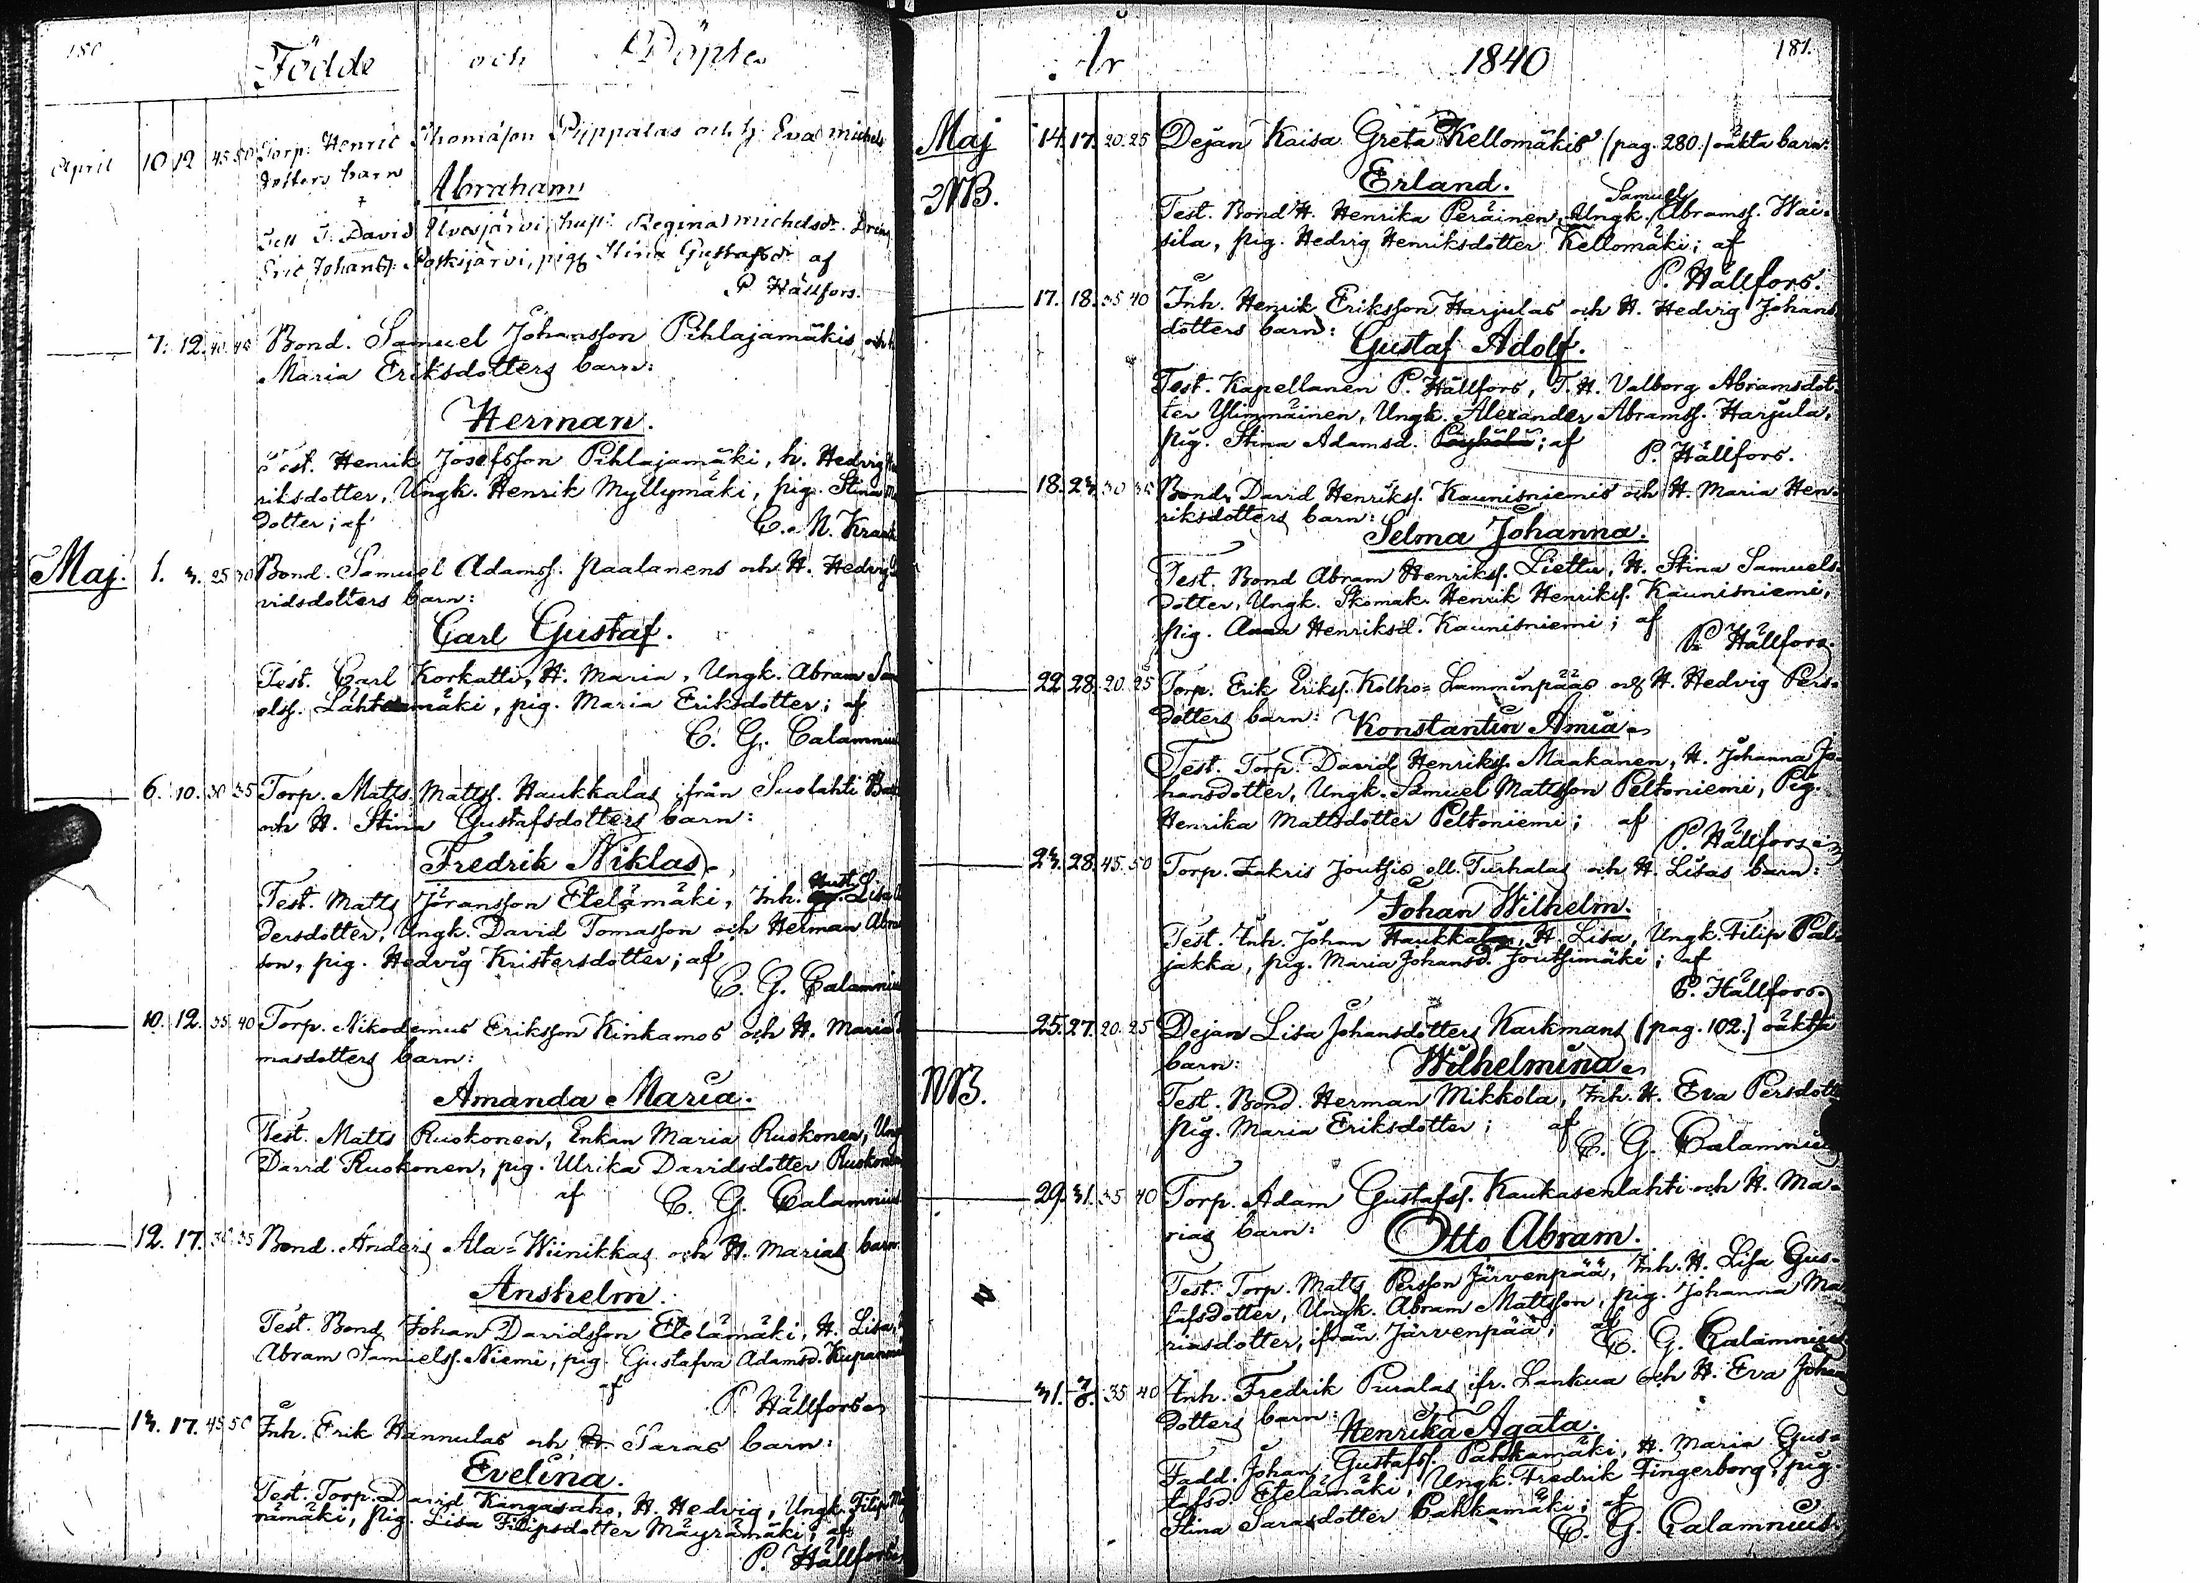 180
Födde och Döpte
April 10 12 45 50 Torp: Henric Thomasson Pyppalas och h. Eva Michels
dotters barn
Abraham
Test T. David Ulvesjärvi, hust: Regina Michelsdr. Dreng
Eric Johanss: Poskijärvi, pig Stina Gustafsdr af
P Hällfors.
7. 12. 40 45 Bond. Samuel Johansson Pihlajamäkis och
Maria Eriksdotters barn:
Herman.
Test. Henrik Josefsson Pihlajamäki, h. Hedvig
riksdotter, Ungk. Henrik Myllymäki, pig. Stina
dotter; af
C. M. Krank
Maj. 1. 3. 25 30 Bond. Samuel Adamss. Paalanens och H. Hedvig
vidsdotters barn:
Carl Gustaf.
Test. Carl Korkatti, H. Maria, Ungk. Abram Sam
elss. mäki, pig. Maria Eriksdotter; af
C. G. Calamnius
6. 10. 30 35 Torp. Matts Mattss. Haukkalas från Suolahti
och H. Stina Gustafsdotters barn:
Fredrik Niklas.
Hust
Test. Matts Jöransson Etelämäki, Inh. Lisa
dersdotter, Ungk. David Tomasson och Herman Abra
son, pig. Hedvig Kristersdotter; af
C. G. Calamnius
10. 12. 35 40 Torp. Nikodemus Eriksson Kinkamos och H. Maria
masdotters barn:
Amanda Maria.
Test. Matts Ruokonen, Enkan Maria Ruokonen, Ung
David Ruokonen, pig. Ulrika Davidsdotter Ruokonen
af C. G. Calamnius
12. 17. 30 35 Bond. Anders Ala=Wiinikkas och H. Marias barn
Anshelm.
Test. Bond Johan Davidsson Etelämäki, H. Lisa,
Abram Samuelss. Niemi, pig. Gustafva Adamsd.
af
P. Hällfors
13. 17. 45 50 Inh. Erik Hannulas och H. Saras barn:
Evelina.
Test. Torp. David Kangasaho, H. Hedvig, Ungk. Filip
rämäki, pig. Lisa Filipsdotter Mäyrämäki; af
P. Hällfors
År 1840 181.
Maj 14. 17. 20. 25 Dejan Kaisa Greta Kellomäkis (pag. 280.) oäkta barn:
NB.
Erland.
Samuel
Test. Bond H. Henrika Peräinen, Ungk. Abramss. Wai=
sila, pig. Hedvig Henriksdotter Kellomäki; af
P. Hällfors.
17. 18. 35 40 Inh. Henrik Eriksson Harjulas och H. Hedvig Johans
dotters barn:
Gustaf Adolf.
Test. Kapellanen P. Hällfors, T. H. Valborg Abramsdot=
ter Ylimmäinen, Ungk. Alexander Abramss. Harjula,
pig. Stina Adamsd. af
P. Hällfors.
18. 23. 30 35 Bond. David Henrikss. Kaunisniemis och H. Maria Hen=
riksdotters barn:
Selma Johanna.
Test. Bond Abram Henrikss. Liettu, H. Stina Samuels=
dotter, Ungk. Skomak. Henrik Henrikss. Kaunisniemi,
pig. Anna Henriksd. Kaunisniemi; af
P. Hällfors.
22. 28. 20 25 Torp. Erik Erikss. Kolho=Lamminpääs och H. Hedvig Pers=
dotters barn:
Konstantin Amia
Test. Torp. David Henrikss. Maakanen, H. Johanna Jo=
hansdotter, Ungk. Samuel Mattsson Peltoniemi, Pig.
Henrika Mattsdotter Peltoniemi; af
P. Hällfors
23. 28. 45. 50 Torp. Zakris Joutsis ell. Turhalas och H. Lisas barn:
Johan Wilhelm.
Test. Inh. Johan Haukkala, H. Lisa, Ungk. Filip Pal=
jakka, pig. Maria Johansd. Joutsimäki; af
P. Hällfors.
25. 27. 20 25 Dejan Lisa Johansdotters Karkmans (pag. 102.) oäkta
barn:
Wilhelmina
NB.
Test. Bond. Herman Mikkola, Inh. H. Eva Persdott
pig. Maria Eriksdotter; af
C. G. Calamnius
29. 31. 35 40 Torp. Adam Gustafss. Kaukasenlahti och H. Ma=
rias barn:
Otto Abram.
Test. Torp. Matts Persson Järvenpää, Inh. H. Lisa Gus=
tafsdotter, Ungk. Abram Mattsson, pig. Johanna Ma
riasdotter, ifrån Järvenpää; af
C. G. Calamnius
31. 7/6. 35 40 Inh. Fredrik Puralas fr. Lankua och H. Eva Johans
dotters barn:
Henrika Agata.
Fadd. Johan Gustafss. Pahkamäki, H. Maria Gus=
tafsd. Etelämäki, Ungk. Fredrik Fingerborg, pig.
Stina Sarasdotter Pahkamäki; af
C. G. Calamnius.